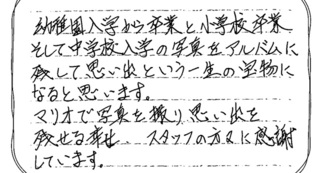 幼稚園入学から卒業と小学校卒業
そして中学校入学の写真をアルバムに
残して思い出という一生の宝物に
なると思います。
マリオで写真を撮り思い出を
残せる幸せ、スタッフの方々に感謝
しています。